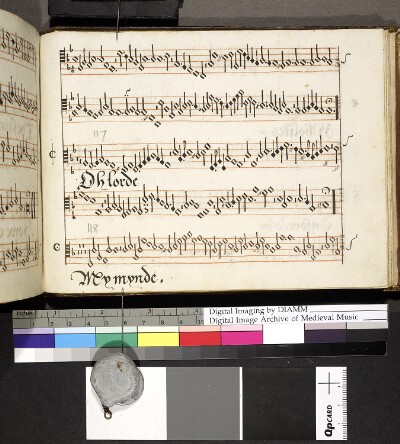 117
Oh lorde
118
My mynde.
Digital Imaging by DIAMM
Digital Image Archive of Medieval Music
QPCARD